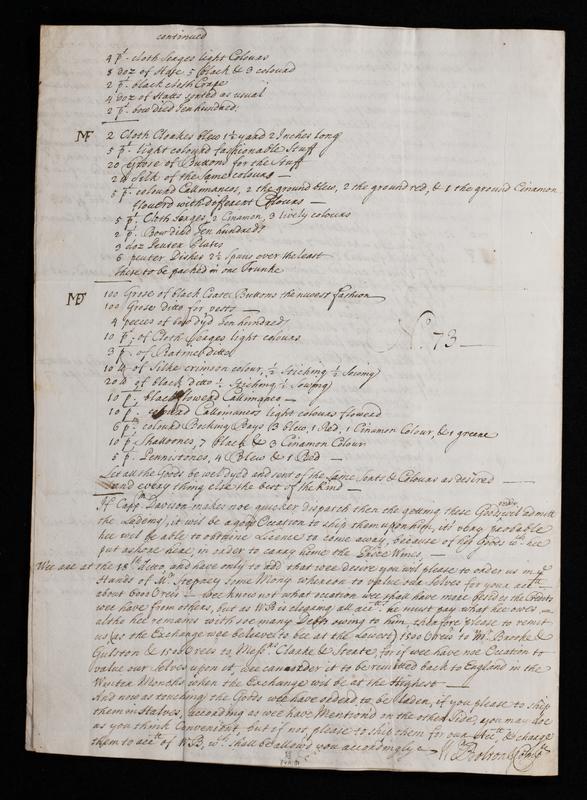 continued
4 ps. cloth Seages light Colours
8 doz of Hose, 5 black & 3 coloured
2 ps. black cloth Crape
4 doz of Hatts sorted as usual
2 ps. bow died Ten hundred.
2 Cloth Cloakes blew 1½ yard 2 Inches long
5 ps. light coloured fashionable Stuff
20 Grose of Buttons for the Stuff
2 lb Silk of the same colours —
5 ps. coloured Calimances, 2 the ground blew, 2 the ground red, & 1 the ground Cinamon
flowerd with different Colours —
5 ps. Cloth Seages, 2 Cinamon, 3 lively colours
2 ps. Bow died Ten hundreds
3 doz Pewter Plates
6 pewter Dishes 2½ Spans over the least
these to be packed in one Trunke
100 Grose of black Coate Buttons the newest fashion
100 Grose ditto for vests —
4 peeces of bow dyd Ten hundred
10 ps. of Cloth Seages light colours
3 ps. of Ratines ditto
No. 73 —
10 lb of Silke crimson colour, ½ Stiching ½ Sowing
20 lb of black ditto ½ Stiching ½ Sowing
10 ps. black flowerd Callimanco —
10 ps. coloured Callimancos light colours flowerd
6 ps. coloured Bocking Bays (3 blew, 1 Red, 1 Cinamon Colour, & 1 greene
10 ps. Shalloones, 7 black & 3 Cinamon Colour
5 ps. Pennistones, 4 Blew & 1 Red —
Let all the Goods be wel dyed and sent of the same Sorts & Colours as desired —
and every thing else the best of the kind —
If Capt. Davison makes noe quicker dispatch then the getting these Goods redie wil admitt
the Ladeing, it wil be a good Occation to ship them upon him, its very probable
hee wil be able to obteine Licence to come away, because of his Goods wch. hee
put ashore here, in order to carry home the Prize Wines, —
Wee are at the 18th. ditto, and have only to add that wee desire you wil please to order us in ye
Hands of Mr. Stepney some Mony whereon to value our Selves for your acctt.
about 600 — wee know not what occation wee shal have more besides the Credits
wee have from others, but as WB is clearing all acctts. he must pay what hee owes —
altho hee remains with soe many Debts owing to him, therefore please to remit
us (as the Exchange wee beleeve to bee at the Lowest) 1500 to Mr. Brooke &
Gulston & 1500 to Messrs. Clarke & Steate, for if wee have noe Occation to
value our Selves upon it, wee can order it to be remitted back to England in the
Winter Months when the Exchange wil be at the Highest —
And now as touching the Goods wee have orderd to be laden, if you please to ship
them in Halves, according as wee have Mentiond in the other Side, you may doe
as you think Convenient, but if not, please to ship them for our Acctt. & charge
them to acctt. of WB, wch. shall be allowd you accordingly